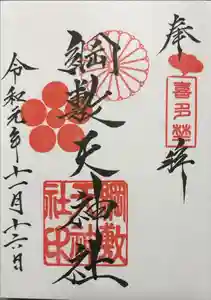 奉拝
喜多埜
綱敷天神社
綱敷天神社之印
令和元年十一月十六日